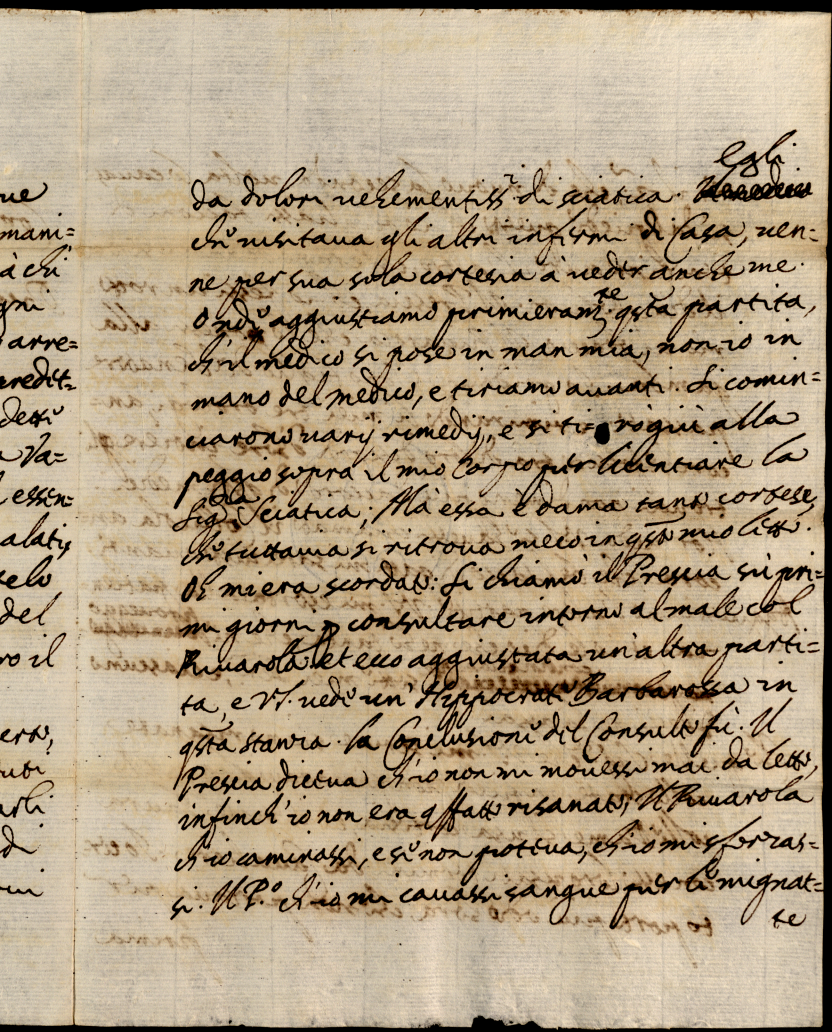 ue
mani=
à chi
gni
arre=
eredit=
dette
a Va=
essen=
alati,
selo
del
ro il
erto,
uti
arli
di
egli
da dolori uehementiss.i di sciatica.
che uisitaua gli altri infermi di Casa, uen=
ne per sua sola cortesia à ueder anche me.
Onde aggiustiamo primieram.te qsta partita,
ch'il medico si pose in man mia, non io in
mano del medico, e tiriamo auanti. Si comin=
ciarono uarij rimedij, e si ti=rò giù alla
peggio sopra il mio Corpo per licentiare la
Sig.ra Sciatica; Ma essa è dama tanto cortese,
che tuttauia si ritroua meco in qsto mio letto.
Oh mi era scordato: Si chiamò il Prescia sù pri=
mi giorni p consultare intorno al male col
Riuarola: et ecco aggiustata un'altra parti=
ta, e V.S. uede un' Hippocrate Barbarossa in
qsta stanza. la Conclusione del Consulto fù. Il
Prescia diceua ch'io non mi mouessi mai da letto,
infinch'io non era affatto risanato; Il Riuarola
ch'io caminassi, e se non poteua, ch'io mi sforzas=
si. Il P.o ch'io mi cauassi sangue per le mignat=
te